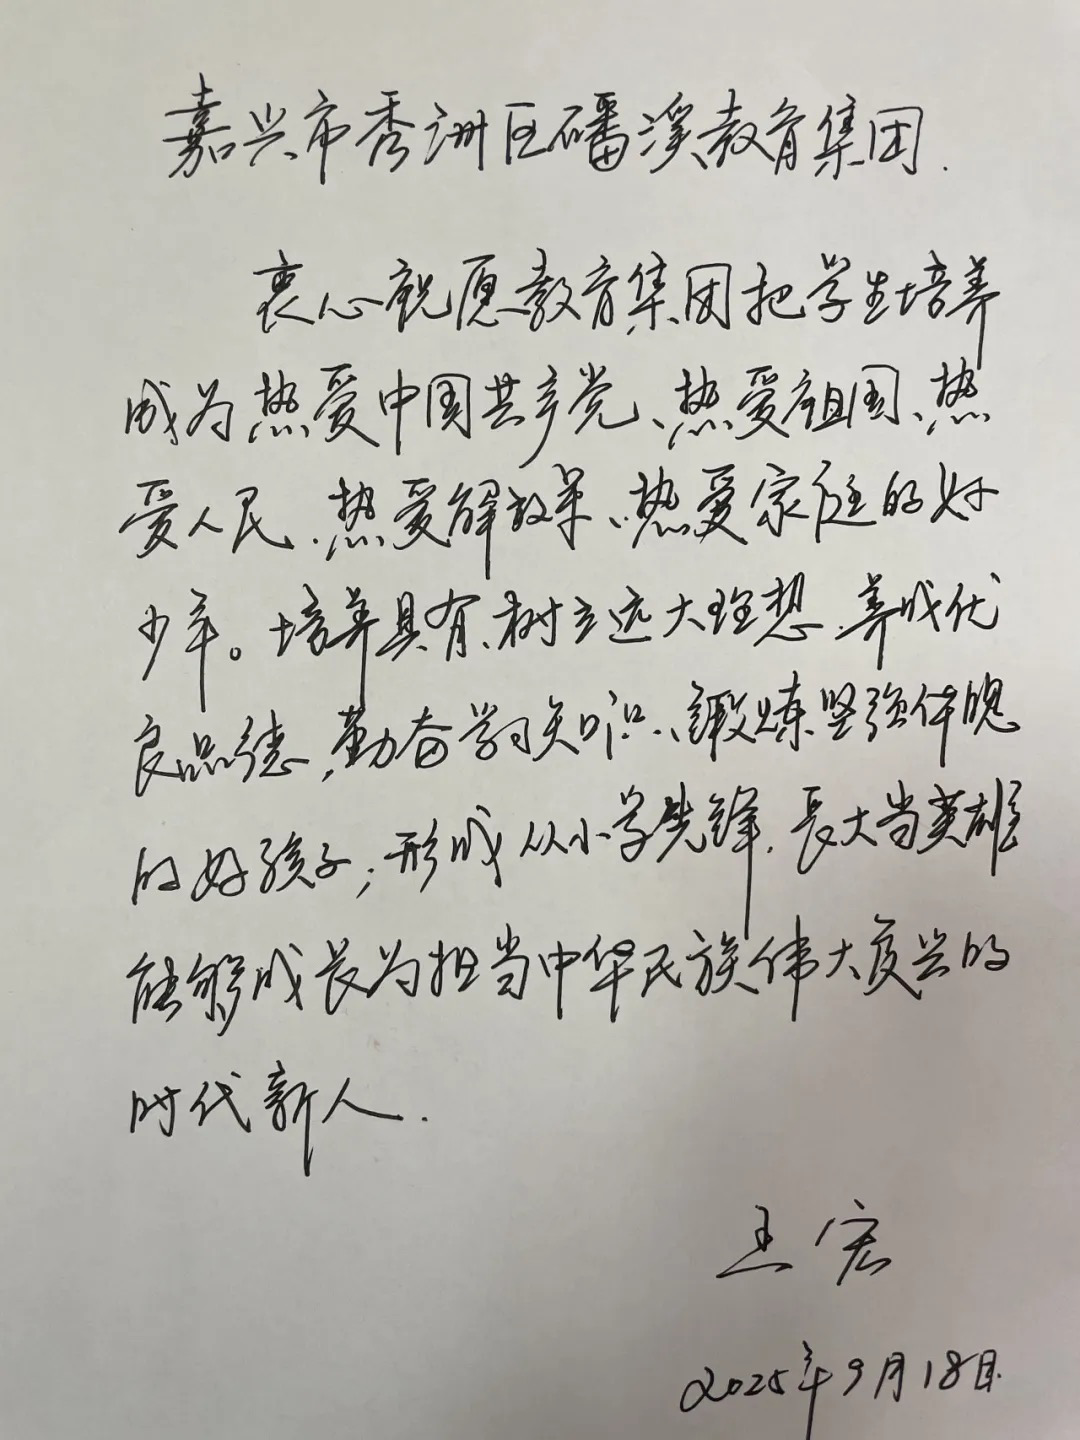 嘉兴市秀洲区磻溪教育集团.
衷心祝愿教育集团把学生培养
成为热爱中国共产党、热爱祖国、热
爱人民、热爱解放军、热爱家庭的好
少年。培养具有、树立远大理想、养成优
良品德,勤奋学习知识、锻炼坚强体魄
的好孩子;形成从小学先锋、长大当英雄
能够成长为担当中华民族伟大复兴的
时代新人.
王宏
2025年9月18日